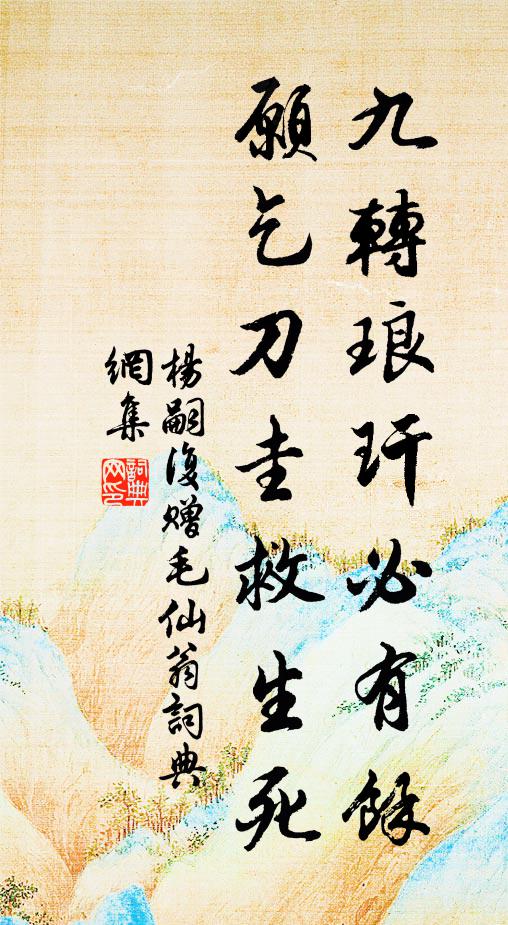 九轉琅玕必有餘
願乞刀圭救生死
楊嗣復贈毛仙翁詞典
網集
詞典
網印